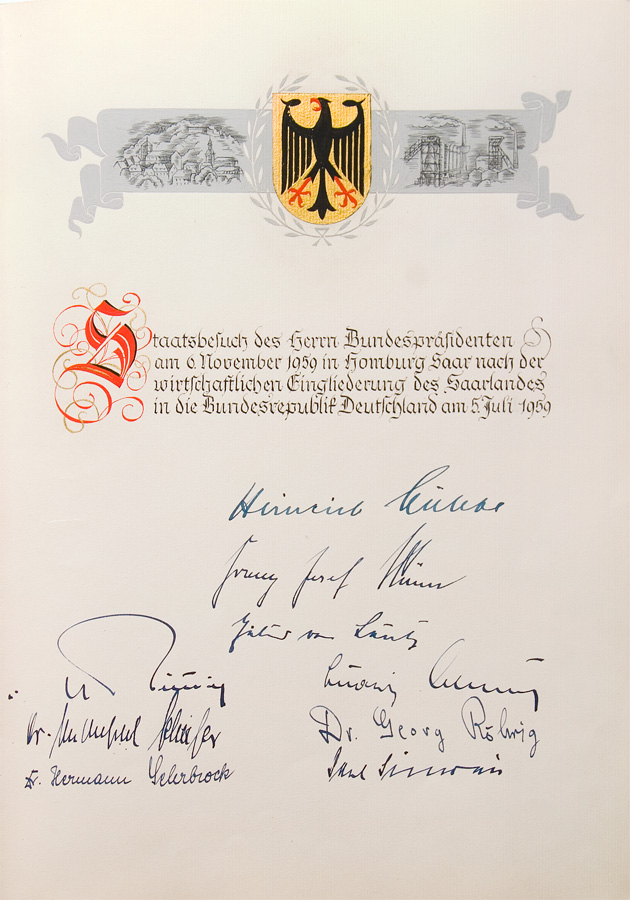 Staatsbesuch des Herrn Bundespräsidenten
am 6. November 1959 in Homburg Saar nach der
wirtschaftlichen Eingliederung des Saarlandes
in die Bundesrepublik Deutschland am 5. Juli 1959
Heinrich Lübke
Franz Josef Röder
Ludwig
Dr. Schäfer
Dr. Georg Röhrig
Dr. Hermann Gehrbrock